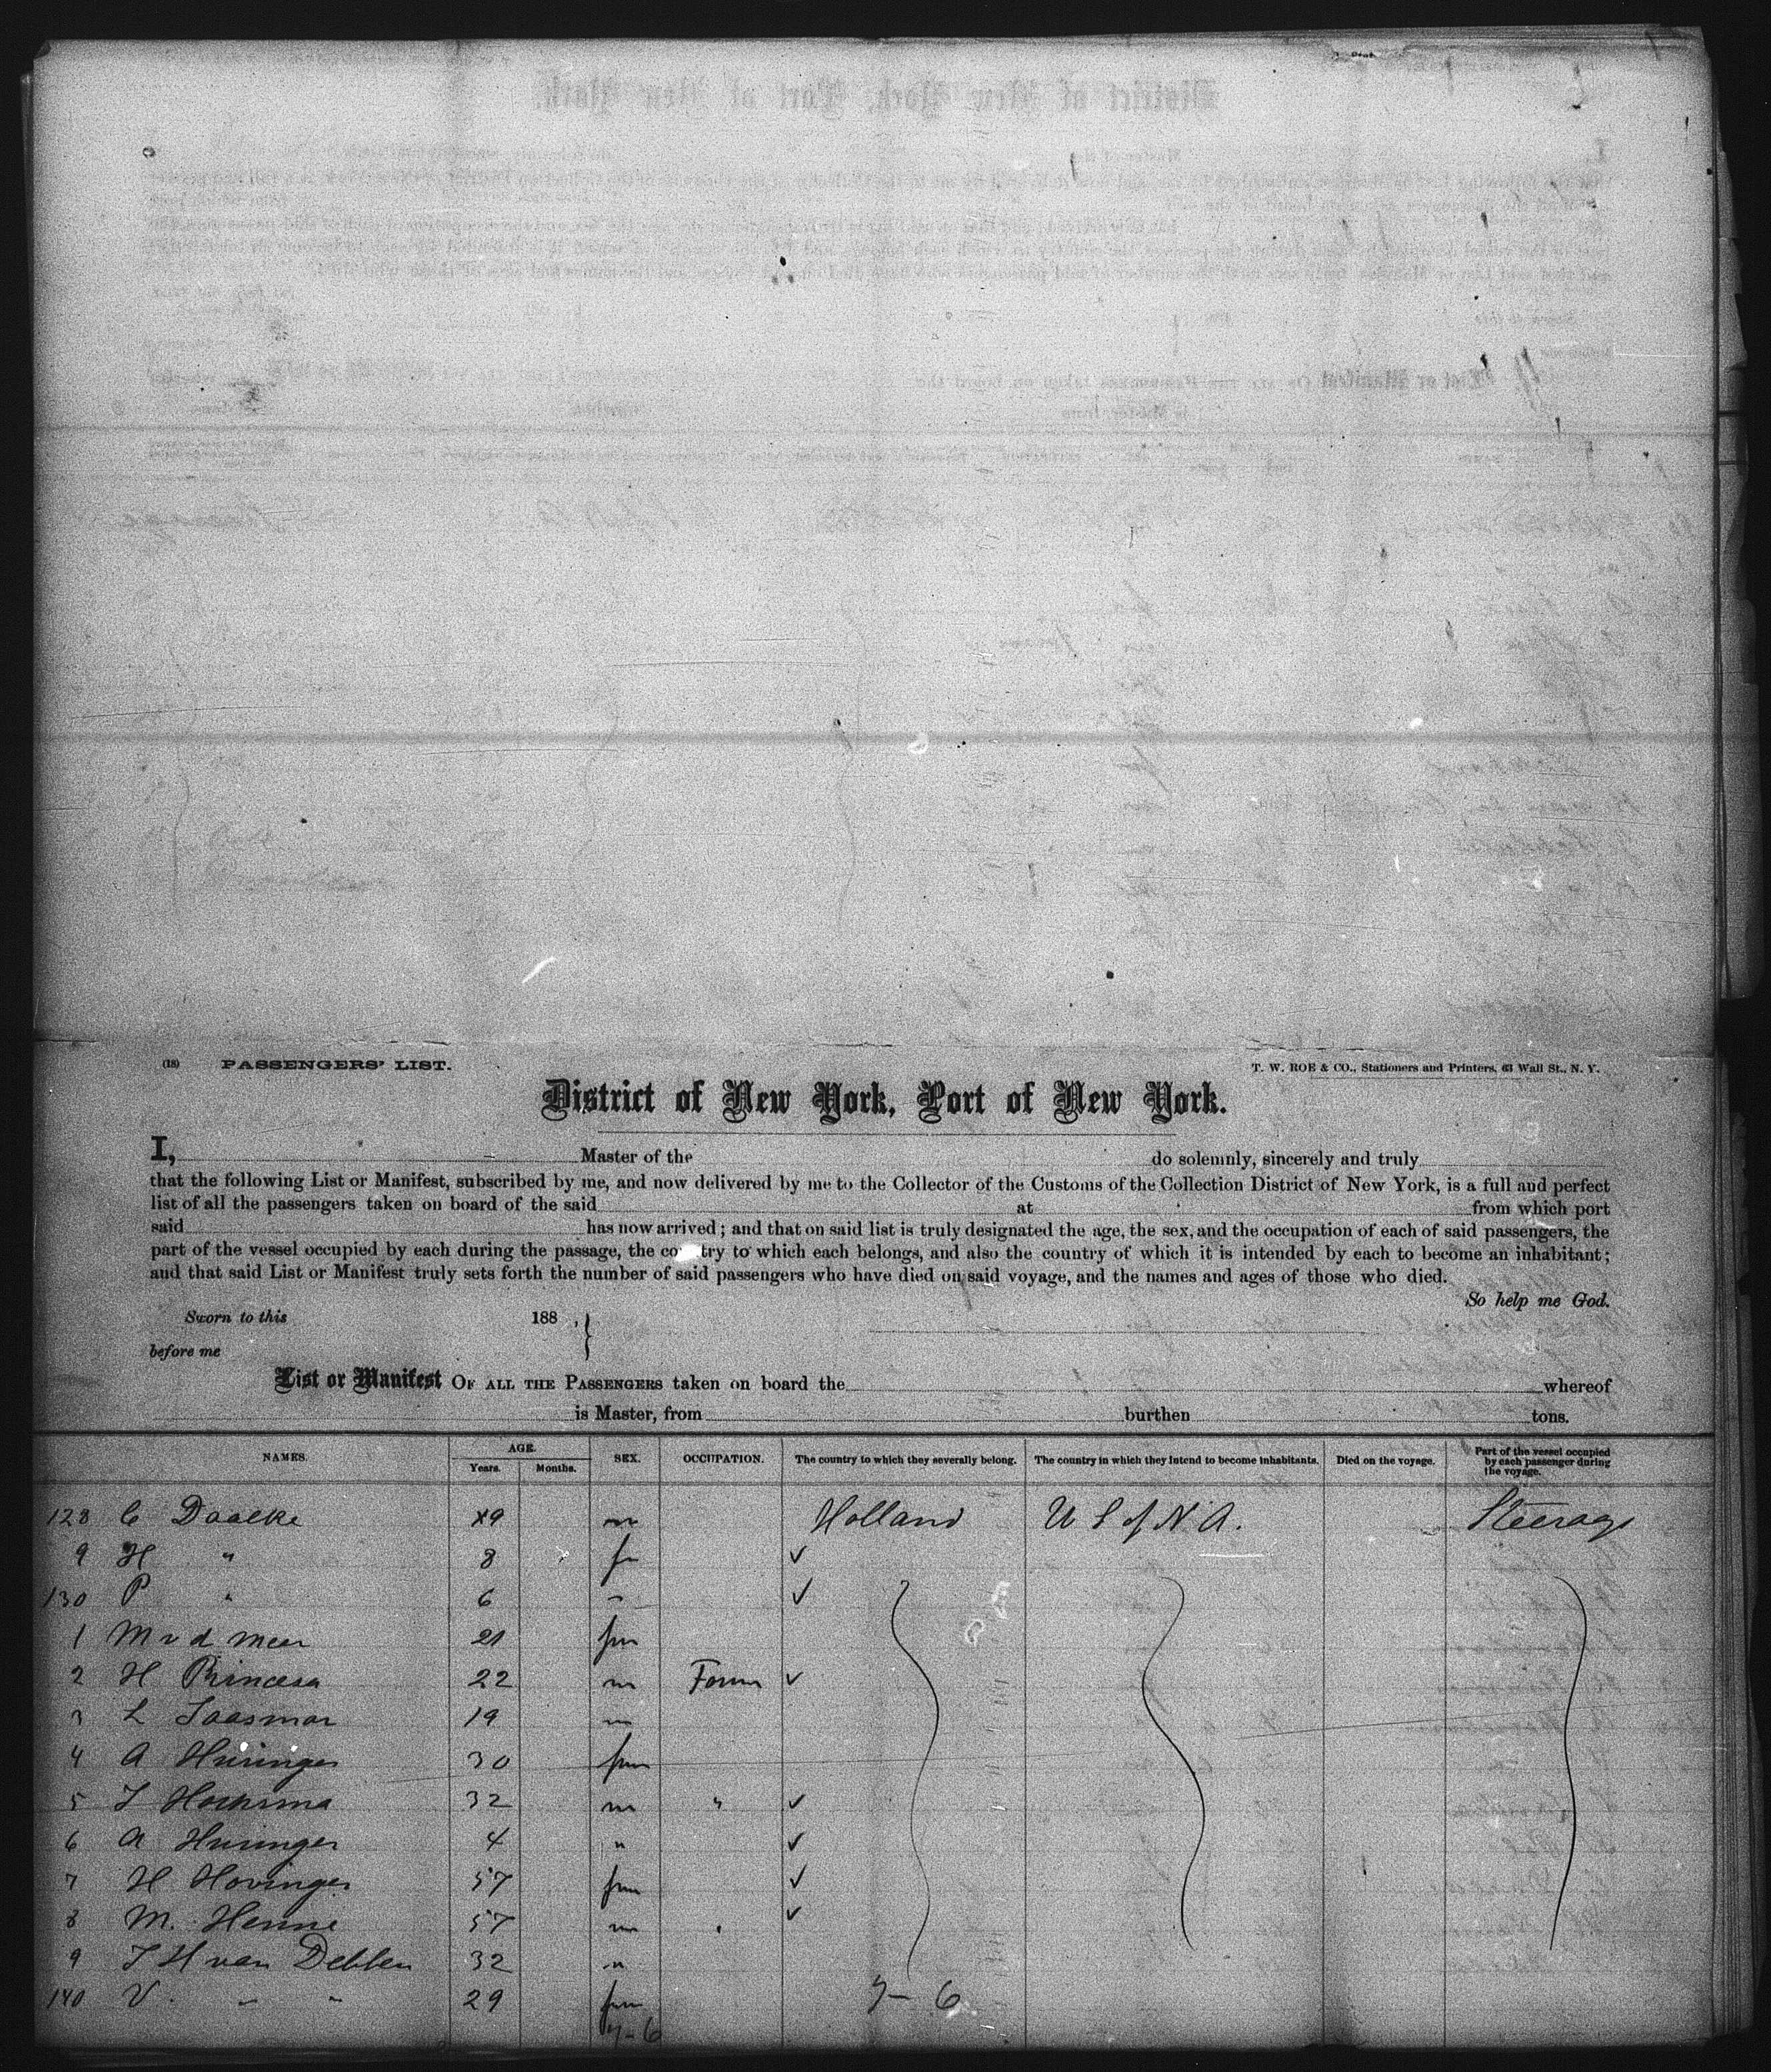 (18) PASSENGERS' LIST. T. W. ROE & CO., Stationers and Printers, 63 Wall St., N. Y.
District of New York, Port of New York.
I, Master of the do solemnly, sincerely and truly
that the following List or Manifest, subscribed by me, and now delivered by me to the Collector of the Customs of the Collection District of New York, is a full and perfect
list of all the passengers taken on board of the said at from which port
said has now arrived; and that on said list is truly designated the age, the sex, and the occupation of each of said passengers, the
part of the vessel occupied by each during the passage, the co try to which each belongs, and also the country of which it is intended by each to become an inhabitant;
and that said List or Manifest truly sets forth the number of said passengers who have died on said voyage, and the names and ages of those who died.
So help me God.
Sworn to this 188 ,
before me
List or Manifest OF ALL THE PASSENGERS taken on board the whereof
is Master, from burthen tons.
NAMES. AGE. Years. Months. SEX. OCCUPATION. The country to which they severally belong. The country in which they intend to become inhabitants. Died on the voyage. Part of the vessel occupied by each passenger during the voyage.
128 C Daalke 9 m Holland U S of N A. Steerage
9 H " 8 fm ✓
130 P " 6 " ✓
1 M v d Meer 21 fm
2 H Princesa 22 m Farm ✓
3 L 19 m
4 A Huringer 30 fm
5 J 32 m " ✓
6 A Huringer 4 " ✓
7 H Hovinger 57 fm ✓
8 M. Henne 57 m " ✓
9 J H van Debben 32 "
140 V. " " 29 fm 7-6
7-6